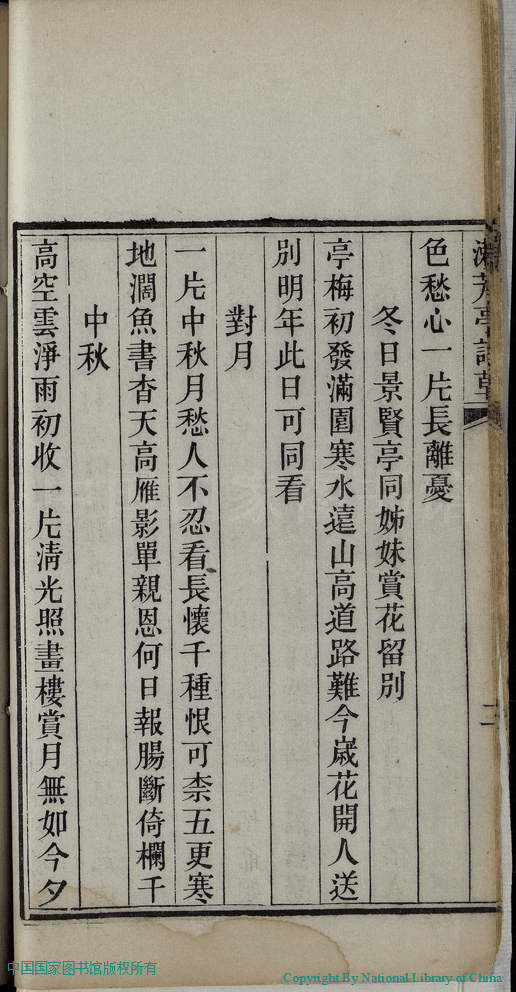 芳亭詩草
二
色愁心一片長離憂
冬日景賢亭同姊妹賞花留別
亭梅初發滿園寒水遠山高道路難今歲花開人送
別明年此日可同看
對月
一片中秋月愁人不忍看長懷千種恨可柰五更寒
地濶魚書杳天高雁影單親恩何日報腸斷倚欄干
中秋
高空雲淨雨初收一片清光照畫樓賞月無如今夕
中国国家图书馆版权所有
Copyright By National Library of China